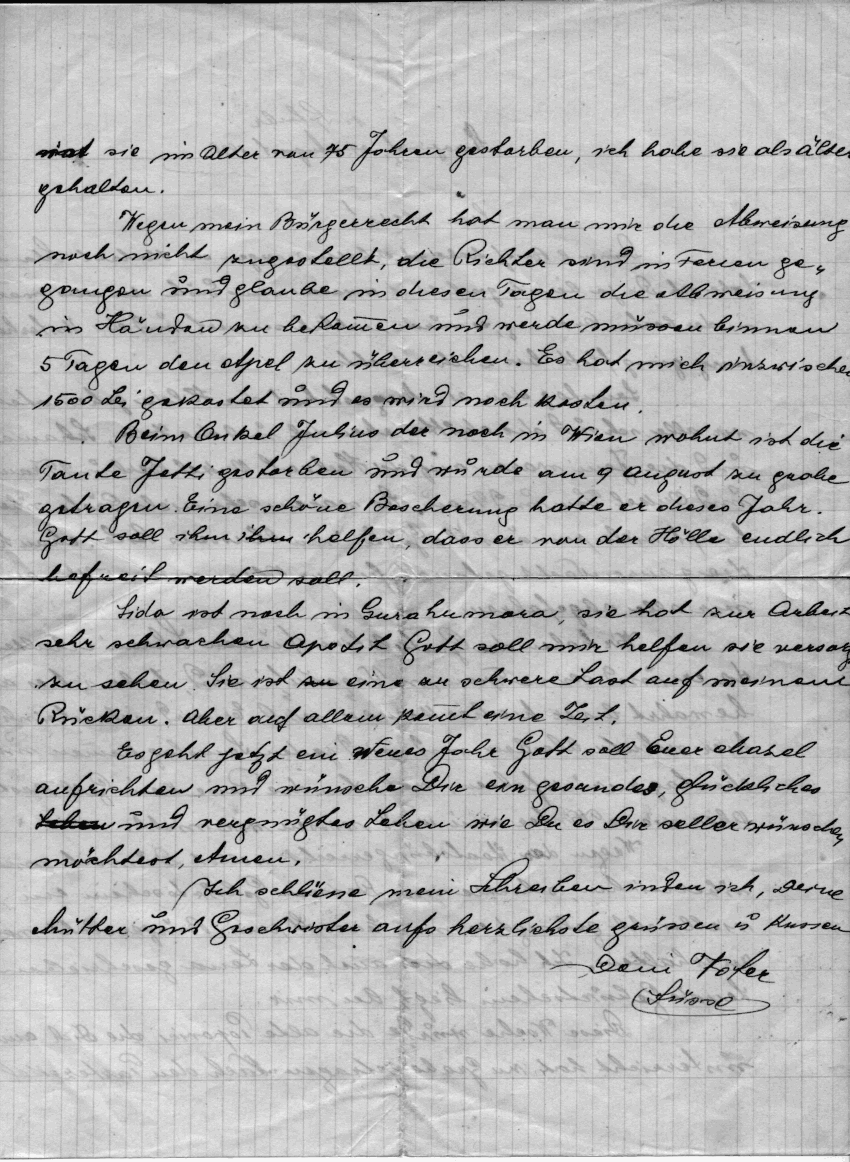 sie im Alter von 75 Jahren gestorben, ich habe sie als älter
gehalten.
Wegen mein Bürgerrecht hat man mir die Abweisung
noch nicht zugestellt, die Richter sind in Ferien ge„
gangen und glaube in diesen Tagen die Abweisung
in Händen zu bekom̅en und werde müssen binnen
5 Tagen den Apel zu überreichen. Es hat mich inzwischen
1500 Lei gekostet und es wird noch kosten.
Beim Onkel Julius der noch in Wien wohnt ist die
Tante Jetti gestorben und wurde am 9 August zu grabe
getragen. Eine schöne Bescherung hatte er dieses Jahr.
Gott soll ihm ihm helfen, dass er von der Hölle endlich
befreit werden soll.
Sida ist noch in Gurahumora, sie hat zur Arbeit
sehr schwachen Apetit Gott soll mir helfen sie versorg
zu sehen. Sie ist zu eine zu schwere Last auf meinem
Rücken. Aber auf allem kom̅t eine Zeit.
Es geht jetzt ein Neues Jahr Gott soll Euer Mazel
aufrichten und wünsche Dir ein gesundes, glückliches
Leben und vergnügtes Leben wie Du es Dir selber wünschen
möchtest, Amen.
Ich schliesse mein Schreiben inden ich, Deine
Mutter und Geschwister aufs herzlichste grüssen u Kussen
Dein Vater
Süsse